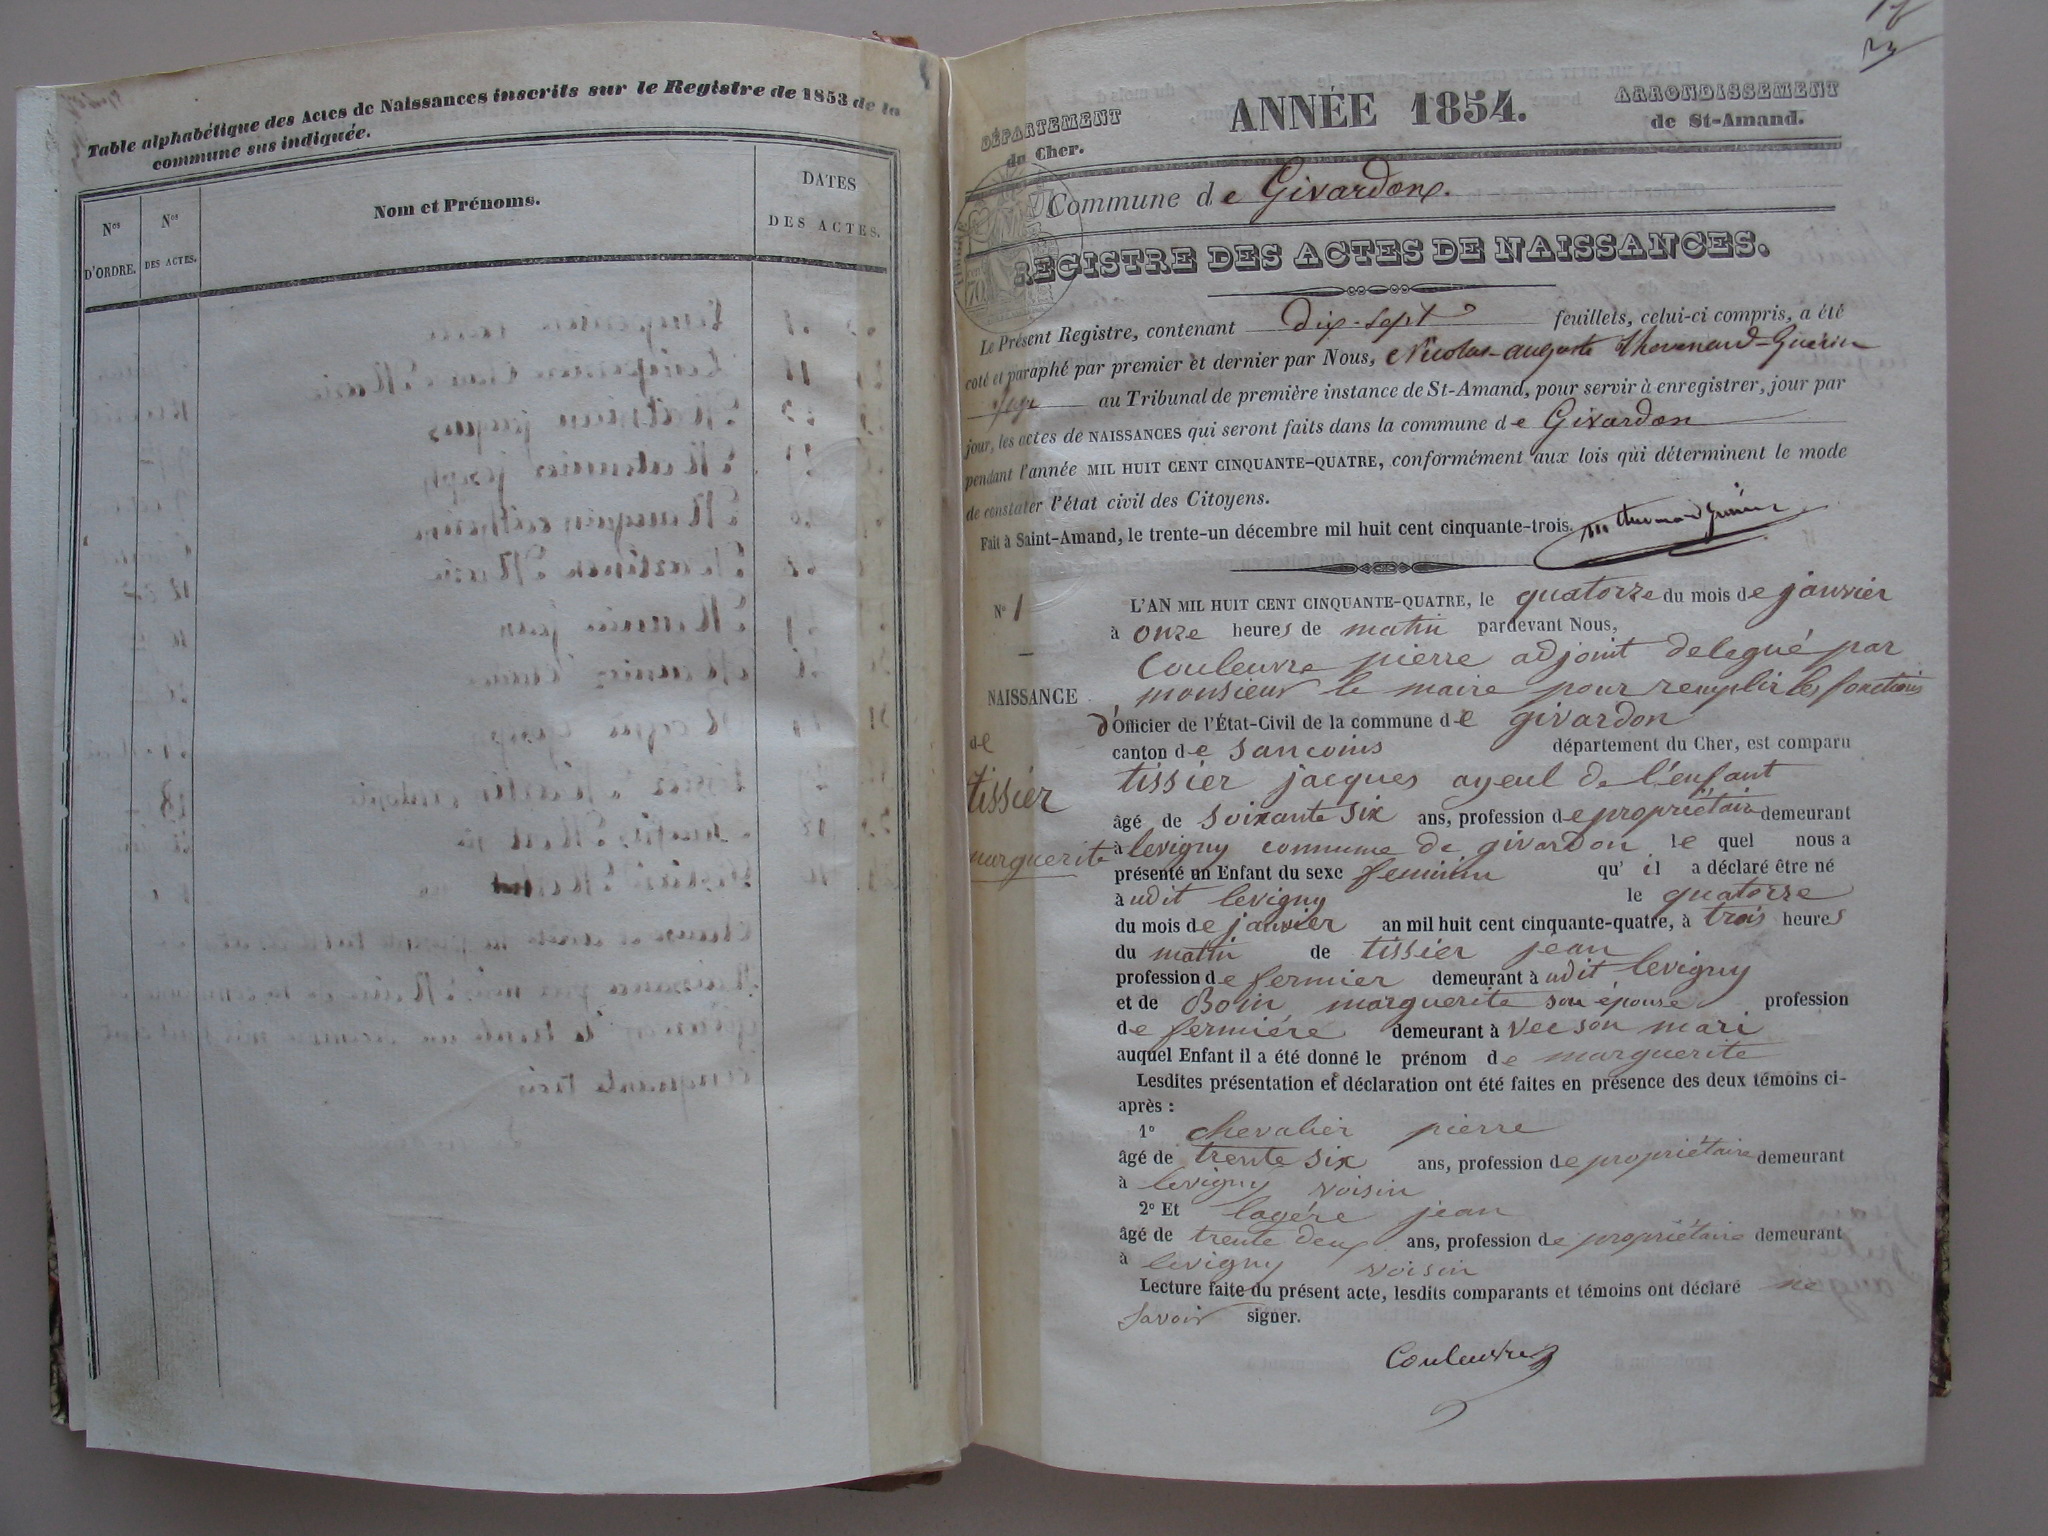 Table alphabétique des Actes de Naissances inscrits sur le Registre de 1853 de la
commune sus indiquée.
Nos D'ORDRE.
Nos DES ACTES.
Nom et Prénoms.
DATES DES ACTES.
DÉPARTEMENT
du Cher.
ANNÉE 1854.
ARRONDISSEMENT
de St-Amand.
Commune de Givardon.
REGISTRE DES ACTES DE NAISSANCES.
Le Présent Registre, contenant dix-sept feuillets, celui-ci compris, a été
coté et paraphé par premier et dernier par Nous, Nicolas-auguste Thevenard-Guérin
juge au Tribunal de première instance de St-Amand, pour servir à enregistrer, jour par
jour, les actes de NAISSANCES qui seront faits dans la commune de Givardon
pendant l'année MIL HUIT CENT CINQUANTE-QUATRE, conformément aux lois qui déterminent le mode
de constater l'état civil des Citoyens.
Fait à Saint-Amand, le trente-un décembre mil huit cent cinquante-trois.
N° 1
NAISSANCE
de
tissier
marguerite
L'AN MIL HUIT CENT CINQUANTE-QUATRE, le quatorze du mois de janvier
à onze heures de matin pardevant Nous,
Couleuvre pierre adjoint delegué par
monsieur le maire pour remplir les fonctions
d'Officier de l'État-Civil de la commune de givardon
canton de sancoins département du Cher, est comparu
tissier jacques ayeul de l'enfant
âgé de soixante six ans, profession de propriétaire demeurant
à levigny commune de givardon le quel nous a
présenté un Enfant du sexe feminin qu'il a déclaré être né
à udit levigny le quatorze
du mois de janvier an mil huit cent cinquante-quatre, à trois heures
du matin de tissier jean
profession de fermier demeurant à udit levigny
et de Boin marguerite son épouse profession
de fermiére demeurant à vec son mari
auquel Enfant il a été donné le prénom de marguerite
Lesdites présentation et déclaration ont été faites en présence des deux témoins ci-
après :
1° chevalier pierre
âgé de trente six ans, profession de propriétaire demeurant
à levigny voisin
2° Et lagére jean
âgé de trente deux ans, profession de propriétaire demeurant
à levigny voisin
Lecture faite du présent acte, lesdits comparants et témoins ont déclaré ne
savoir signer.
Couleuvre